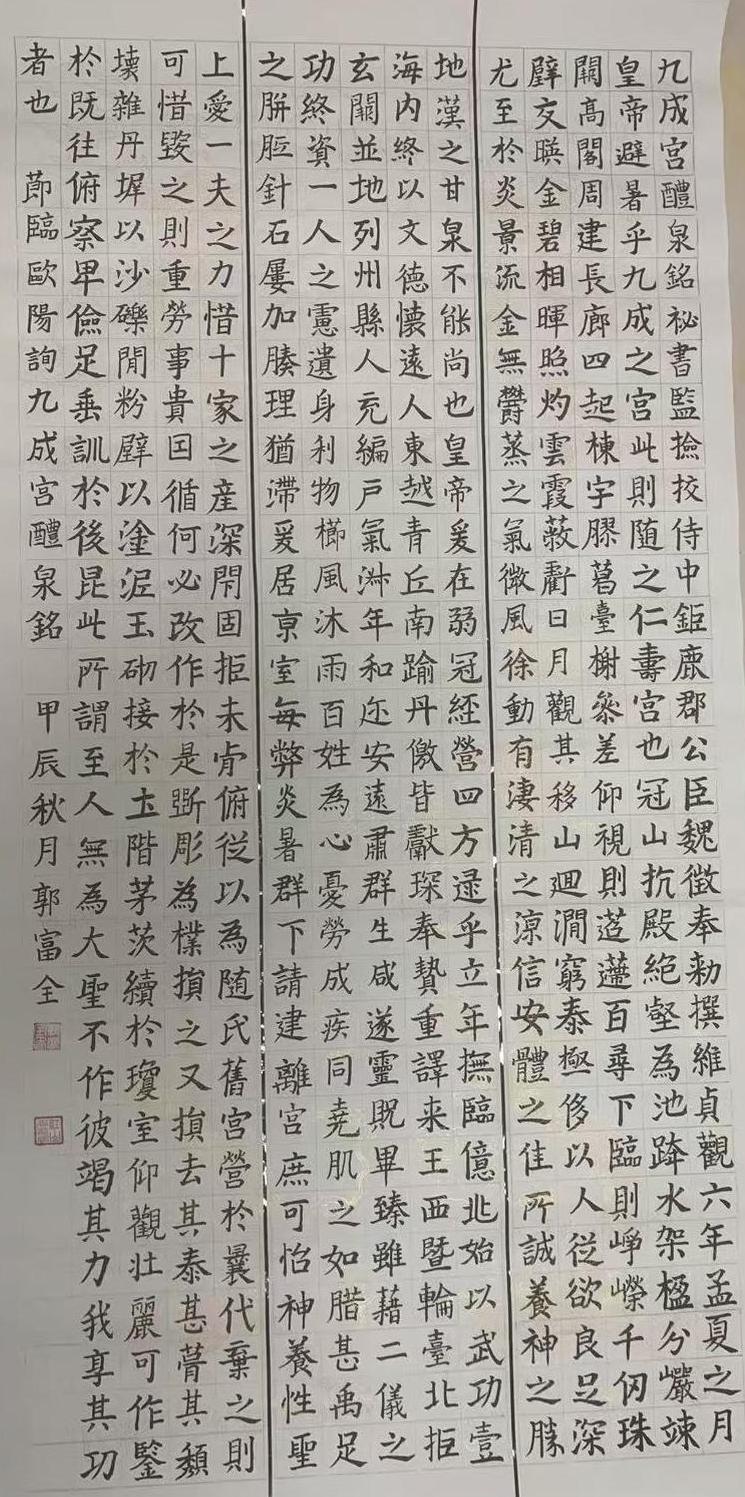 九成宮醴泉銘祕書監撿挍侍中鉅鹿郡公臣魏徵奉勑撰維貞觀六年孟夏之月
皇帝避暑乎九成之宮此則随之仁壽宮也冠山抗殿絕壑為池跨水架楹分巖竦
闕高閣周建長廊四起棟宇膠葛臺榭叅差仰視則迢遰百尋下臨則崢嶸千仞珠
壁交暎金碧相暉照灼雲霞蔽虧日月觀其移山迴澗窮泰極侈以人從欲良足深
尤至於炎景流金無鬱蒸之氣微風徐動有淒清之涼信安體之佳所誠養神之勝
地漢之甘泉不能尚也皇帝爰在弱冠經營四方逮乎立年撫臨億兆始以武功壹
海内終以文德懷遠人東越青丘南踰丹儌皆獻琛奉贄重譯来王西暨輪臺北拒
玄闕並地列州縣人充編戶氣淑年和迩安遠肅群生咸遂靈貺畢臻雖藉二儀之
功終資一人之慮遺身利物櫛風沐雨百姓為心憂勞成疾同堯肌之如腊甚禹足
之胼胝針石屢加腠理猶滯爰居京室每弊炎暑群下請建離宮庶可怡神養性聖
上愛一夫之力惜十家之產深閇固拒未肯俯從以為随氏舊宮營於曩代棄之則
可惜毀之則重勞事貴因循何必改作於是斲彫為樸損之又損去其泰甚葺其頽
壞雜丹墀以沙礫閒粉壁以塗泥玉砌接於土階茅茨續於瓊室仰觀壯麗可作鑒
於既往俯察卑儉足垂訓於後昆此所謂至人無為大聖不作彼竭其力我享其功
者也 節臨歐陽詢九成宮醴泉銘 甲辰秋月郭富全